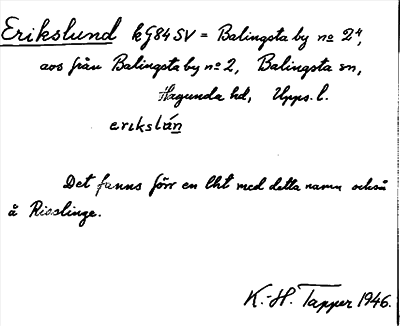 Erikslund kG84SV = Balingsta by no 2⁴,
avs från Balingsta by no 2, Balingsta sn,
Hagunda hd, Upps. l.
erikslán
Det fanns förr en lht med detta namn också
å Risslinge.
K.-H. Tapper 1946.